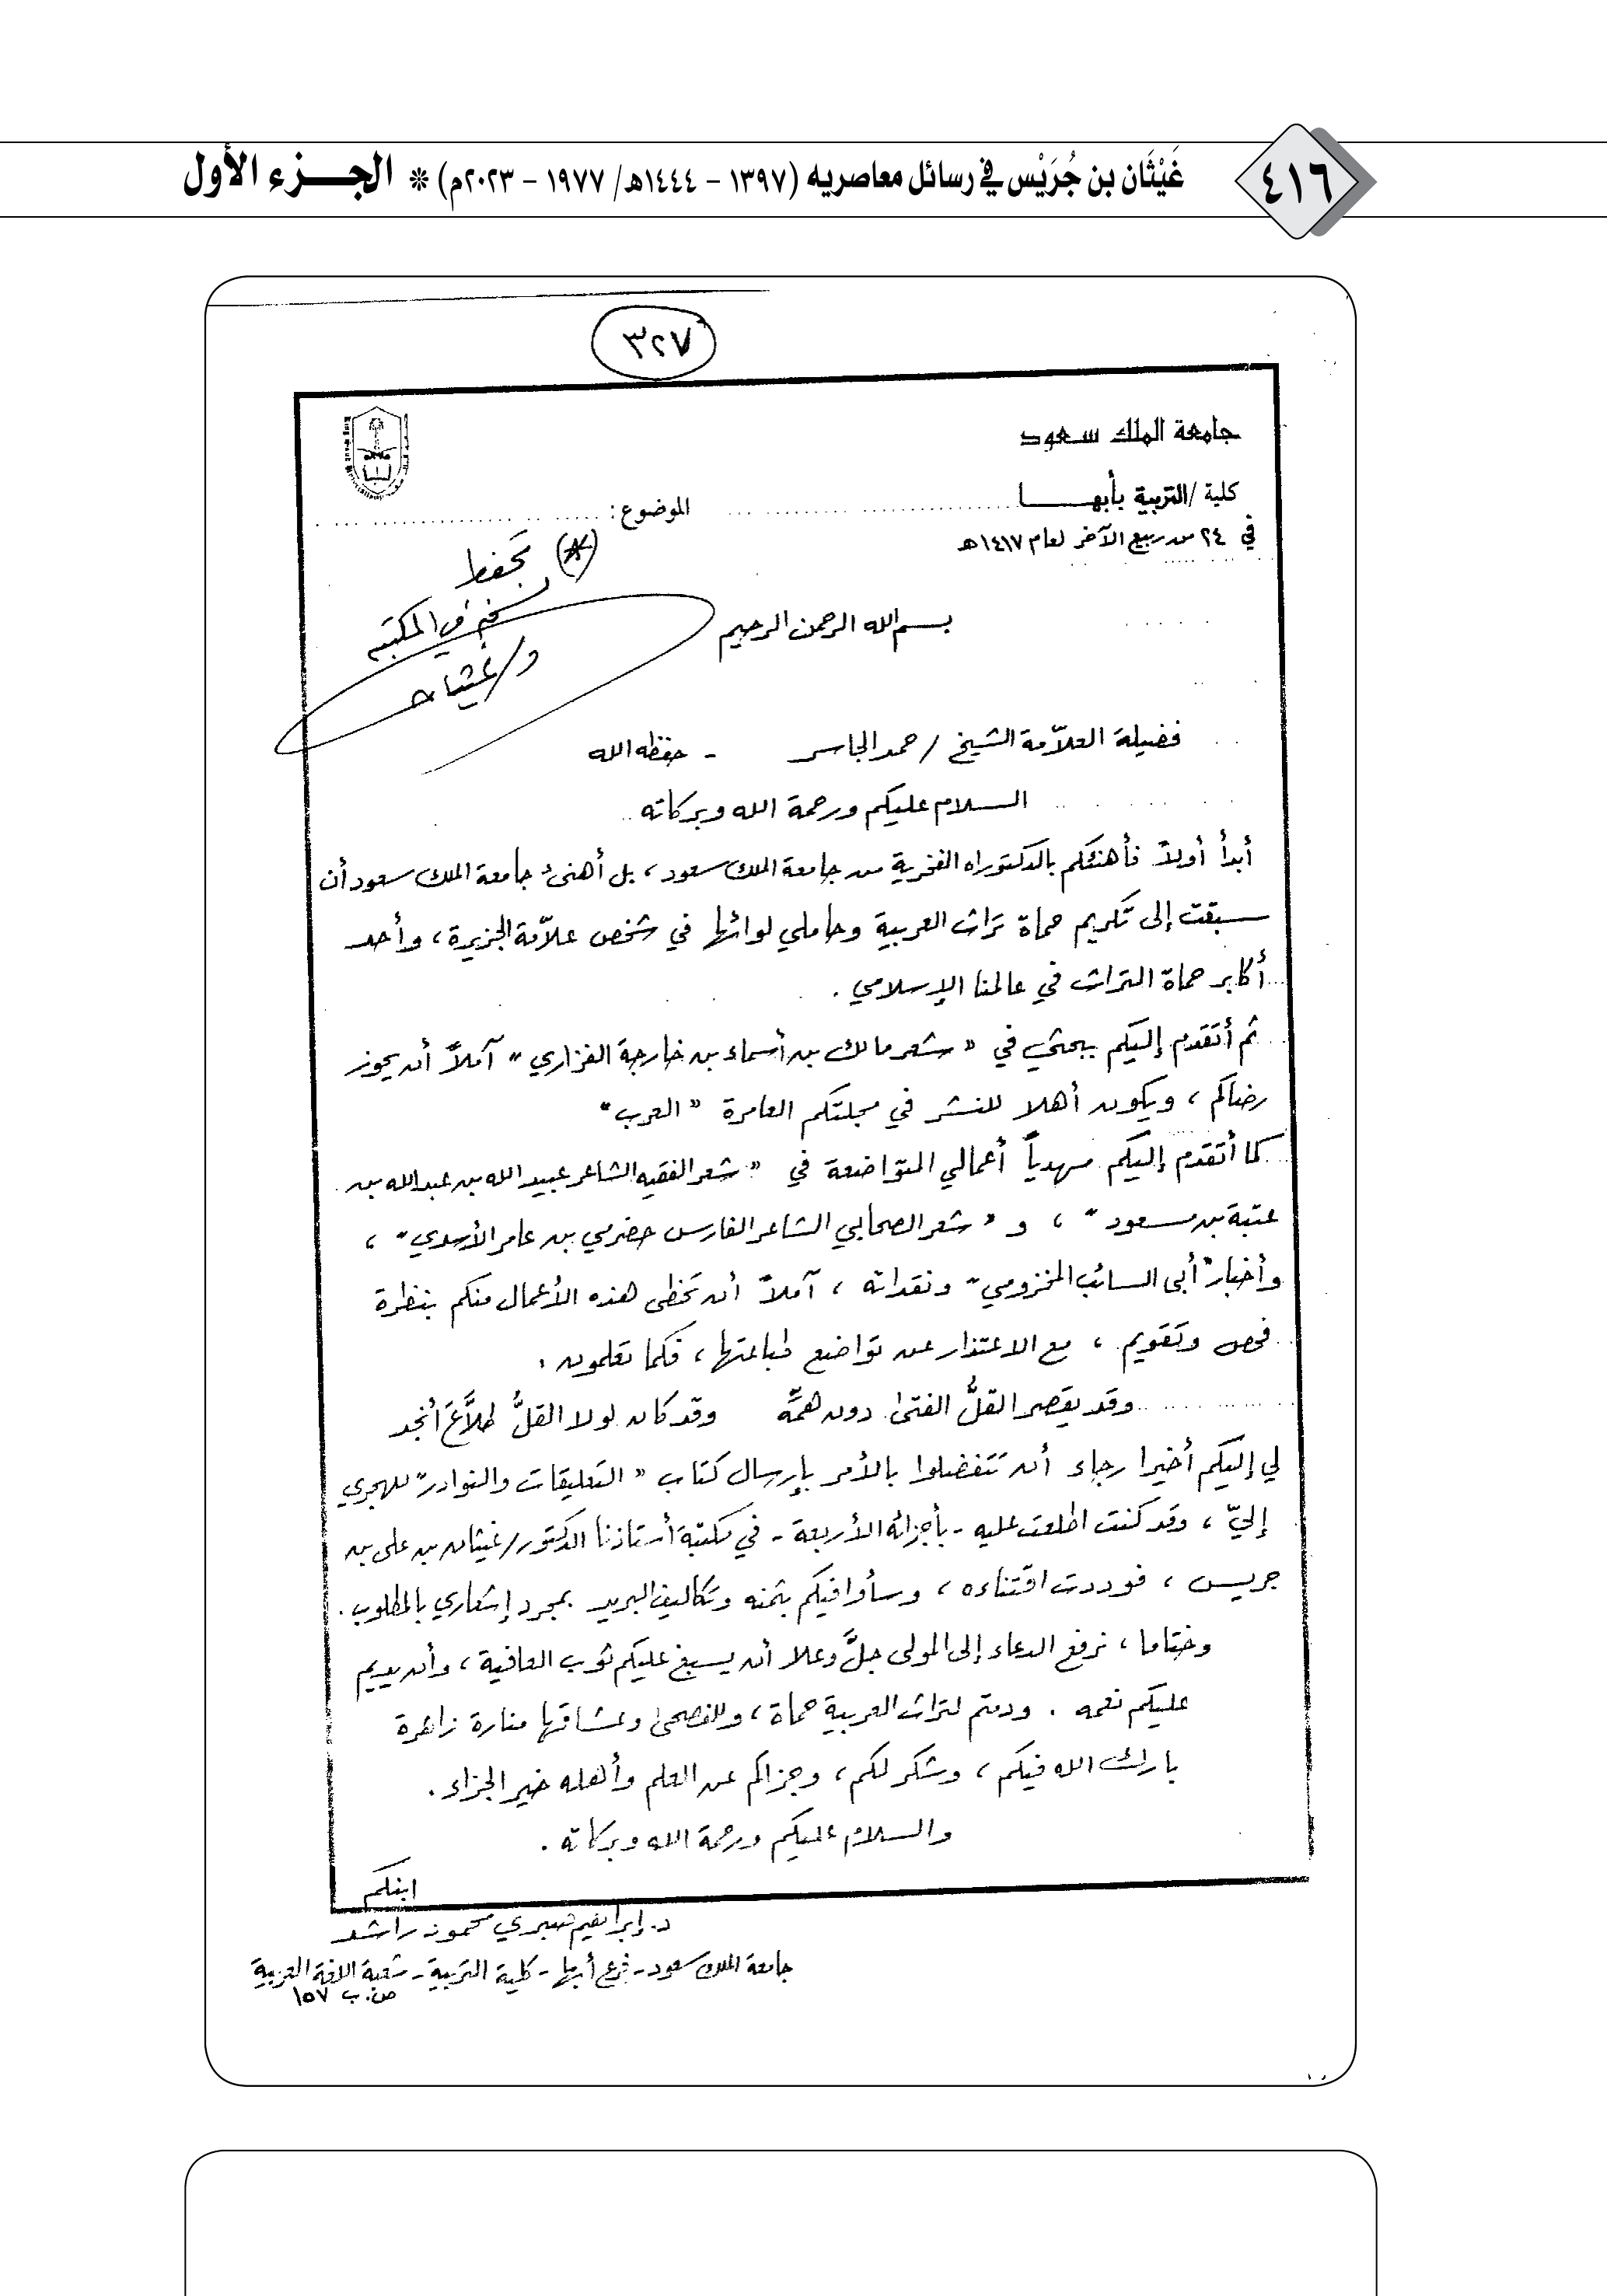 ٤١٦
غَيْثَان بن جُرَيْس في رسائل معاصريه (١٣٩٧ - ١٤٤٤هـ/ ١٩٧٧ - ٢٠٢٣م) * الجـــزء الأول
٣٢٧
جامعة الملك سعود
كلية /التربية بأبهـــا
الموضوع:
في ٢٤ من ربيع الآخر لعام ١٤١٧هـ
(*) تحفظ
نسخة في المكتبة
د/غيثان
بسم الله الرحمن الرحيم
فضيلة العلاّمة الشيخ / حمد الجاسر - حفظه الله
السلام عليكم ورحمة الله وبركاته
أبدأ أولاً فأهنئكم بالدكتوراه الفخرية من جامعة الملك سعود، بل أهنئ جامعة الملك سعود أن
سبقت إلى تكريم حماة تراث العربية وحاملي لوائها في شخص علاّمة الجزيرة، وأحد
أكابر حماة التراث في عالمنا الإسلامي.
ثم أتقدم إليكم ببحثي في "شعر مالك بن أسماء بن خارجة الفزاري" آملاً أن يحوز
رضاكم، ويكون أهلا للنشر في مجلتكم العامرة "العرب"
كما أتقدم إليكم مهدياً أعمالي المتواضعة في "شعر الفقيه الشاعر عبيد الله بن عبد الله بن
عتبة بن مسعود"، و "شعر الصحابي الشاعر الفارس حضرمي بن عامر الأسدي"،
وأخبار "أبى السائب المخزومي" ونقداته، آملاً أن تحظى هذه الأعمال منكم بنظرة
فحص وتقويم، مع الاعتذار عن تواضع طباعتها، فكما تعلمون:
وقد يقصر القلُّ الفتى دون همِّه وقد كان لولا القلُّ طلاَّعَ أنجد
لي إليكم أخيرا رجاء أن تتفضلوا بالأمر بإرسال كتاب "التعليقات والنوادر" للهجري
إليّ، وقد كنت اطلعت عليه - بأجزائه الأربعة - في مكتبة أستاذنا الدكتور/غيثان بن على بن
جريس، فوددت اقتناءه، وسأوافيكم بثمنه وتكاليف البريد بمجرد إشعاري بالمطلوب.
وختاما، نرفع الدعاء إلى المولى جلَّ وعلا أن يسبغ عليكم ثوب العافية، وأن يديم
عليكم نعمه. ودمتم لتراث العربية حماة، وللفصحى وعشاقها منارة زاهرة
بارك الله فيكم، وشكر لكم، وجزاكم عن العلم وأهله خير الجزاء.
والسلام عليكم ورحمة الله وبركاته.
ابنكم
د. إبراهيم صبري محمود راشد
جامعة الملك سعود - فرع أبها - كلية التربية - شعبة اللغة العربية
ص.ب ١٥٧